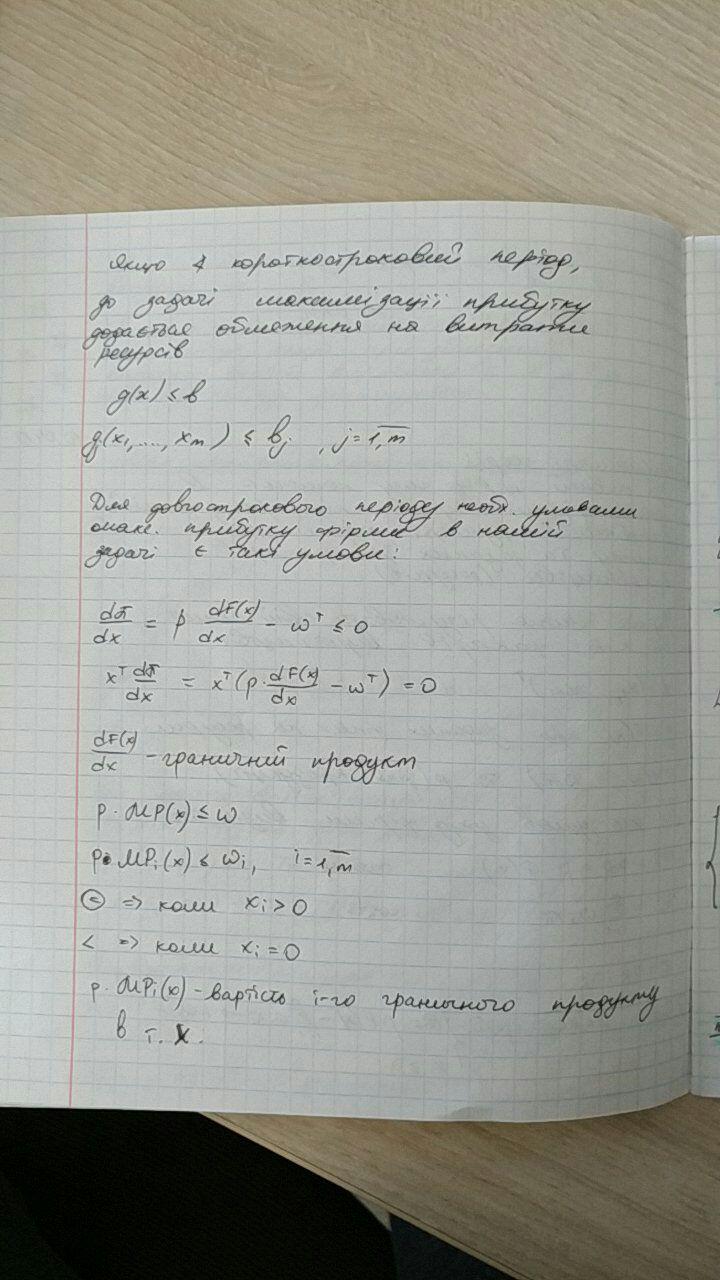 Якщо ∃ короткостроковий період,
до задачі максимізації прибутку
додається обмеження на витрати
ресурсів
g(x) ≤ b
gj(x₁, ..., xₘ) ≤ bj , j = 1,m̅
Для довгострокового періоду необх. умовами
макс. прибутку фірми в нашій
задачі є такі умови:
dπ/dx = p dF(x)/dx - wᵀ ≤ 0
xᵀ dπ/dx = xᵀ(p · dF(x)/dx - wᵀ) = 0
dF(x)/dx - граничний продукт
p · MP(x) ≤ w
p · MPᵢ(x) ≤ wᵢ, i = 1,m̅
= ⇒ коли xᵢ > 0
< ⇒ коли xᵢ = 0
p · MPᵢ(x) - вартість і-го граничного продукту
в т. x.